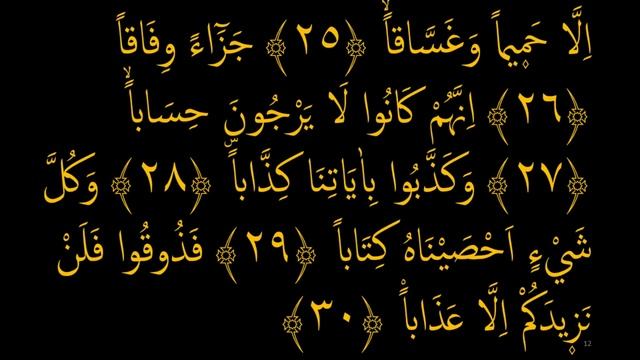 اِلَّا حَمٖيماً وَغَسَّاقاًۙ ﴿٢٥﴾ جَزَٓاءً وِفَاقاً
﴿٢٦﴾ اِنَّهُمْ كَانُوا لَا يَرْجُونَ حِسَاباًۙ
﴿٢٧﴾ وَكَذَّبُوا بِاٰيَاتِنَا كِذَّاباًؕ ﴿٢٨﴾ وَكُلَّ
شَيْءٍ اَحْصَيْنَاهُ كِتَاباً ﴿٢٩﴾ فَذُوقُوا فَلَنْ
نَزٖيدَكُمْ اِلَّا عَذَاباً۟ ﴿٣٠﴾
12